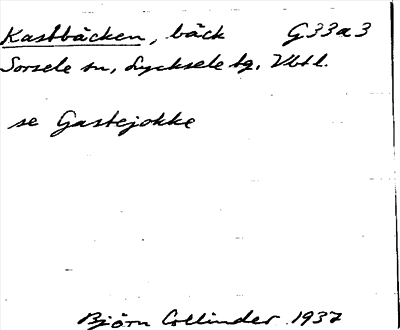 Kastbäcken, bäck G33a3
Sorsele sn, Lycksele tg. Vbtl.
se Gastejokke
Björn Collinder 1937